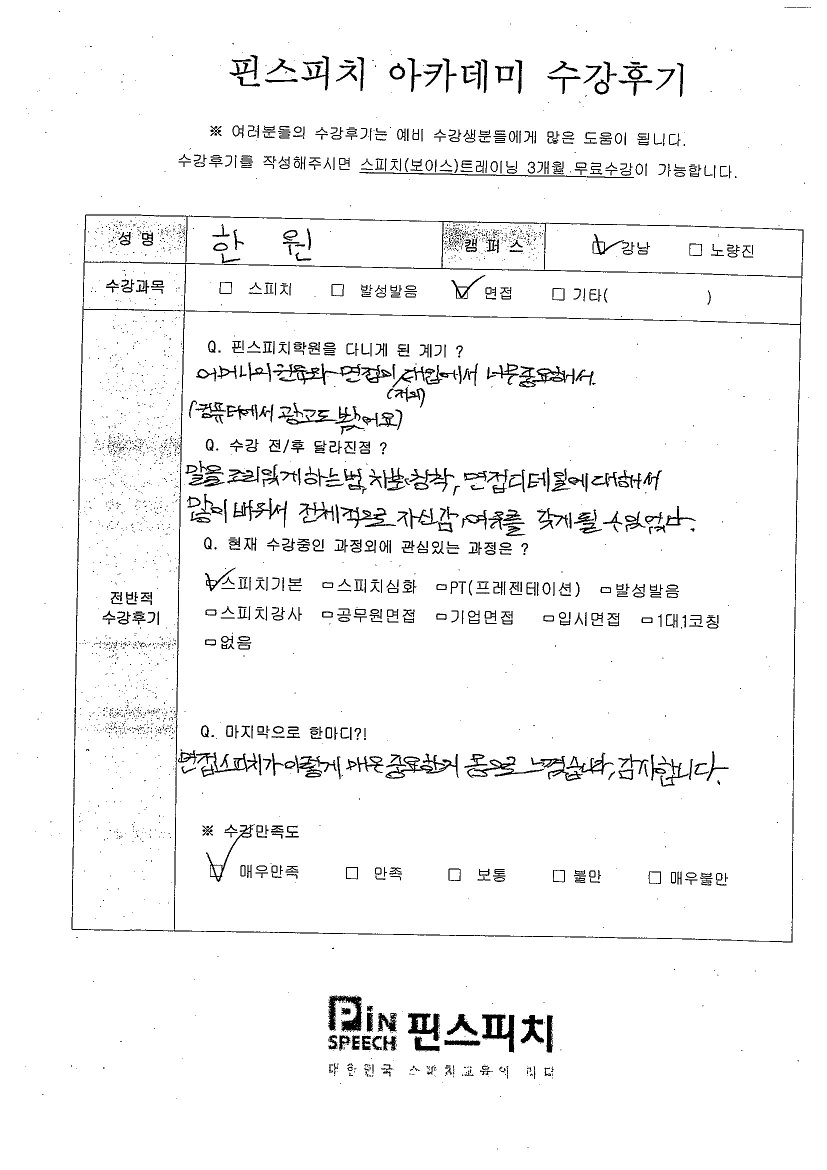 핀스피치 아카데미 수강후기
※ 여러분들의 수강후기는 예비 수강생분들에게 많은 도움이 됩니다.
수강후기를 작성해주시면 스피치(보이스)트레이닝 3개월 무료수강이 가능합니다.
성 명 한 원 캠 퍼 스 ☑ 강남 □ 노량진
수강과목 □ 스피치 □ 발성발음 ☑ 면접 □ 기타( )
전반적
수강후기
Q. 핀스피치학원을 다니게 된 계기 ?
어머니의 권유와 면접이 대입에서 너무중요해서.
(저의)
(컴퓨터에서 광고도 봤어요)
Q. 수강 전/후 달라진점 ?
말을 조리있게 하는법, 차분 침착, 면접디테일에 대해서
많이 배워서 전체적으로 자신감, 여유를 갖게될 수 있었다.
Q. 현재 수강중인 과정외에 관심있는 과정은 ?
☑스피치기본 □스피치심화 □PT(프레젠테이션) □발성발음
□스피치강사 □공무원면접 □기업면접 □입시면접 □1대1코칭
□없음
Q. 마지막으로 한마디?!
면접스피치가 이렇게 매운 중요한거 몸으로 느꼈습니다, 감사합니다.
※ 수강만족도
☑ 매우만족 □ 만족 □ 보통 □ 불만 □ 매우불만
PiN
SPEECH 핀스피치
대한민국 스피치교육의 리더